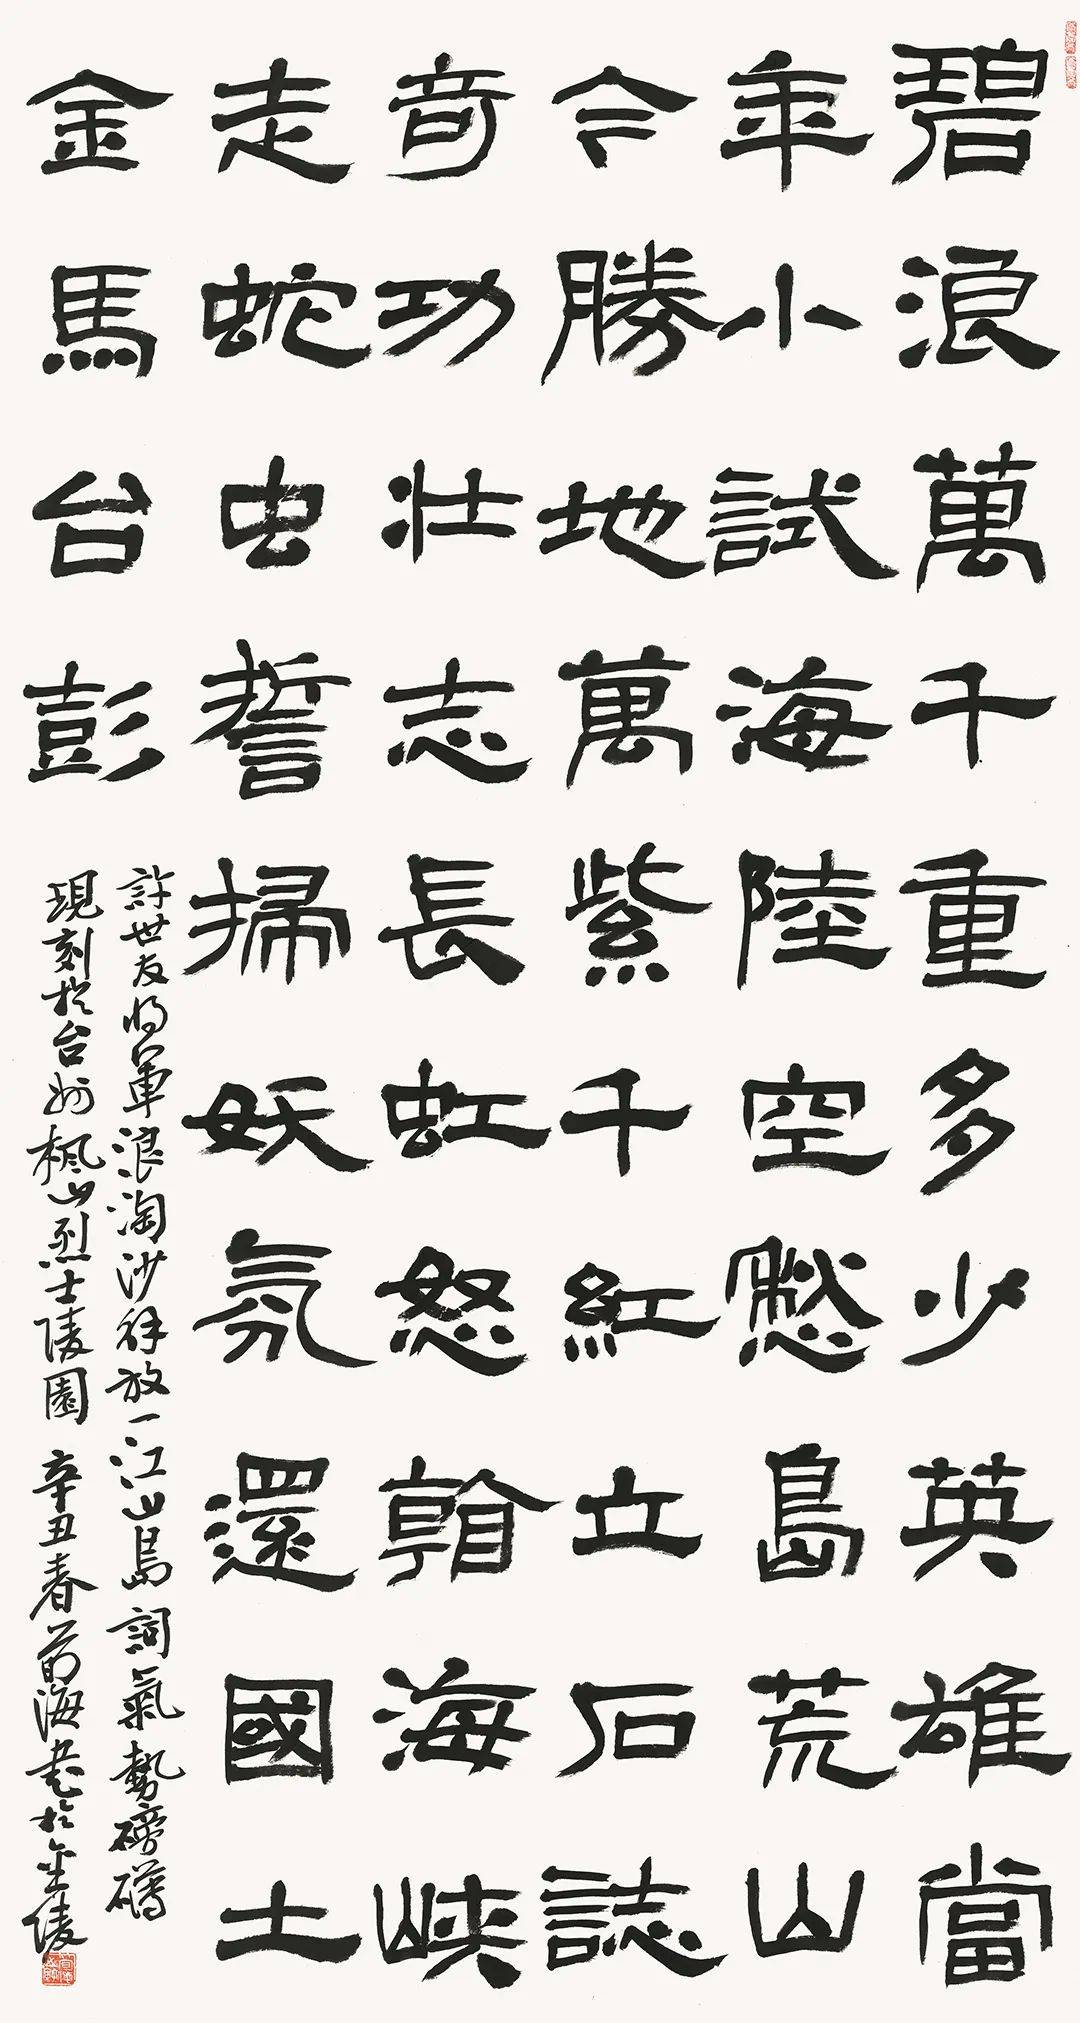 碧浪萬千重多少英雄當
年小試海陸空愁島荒山
今勝地萬紫千紅立石誌
奇功壯志長虹怒朝海峽
走蛇虫誓掃妖氛還國土
金馬台彭
許世友將軍浪淘沙解放一江山島詞氣勢磅礴
現刻於台州楓山烈士陵園 辛丑春 海書於金陵